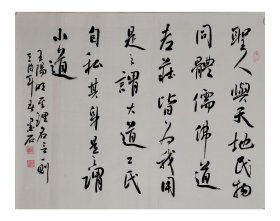 聖人與天地民物
同體儒佛道
老莊皆为我用
是之謂大道二氏
自私其身是之謂
小道
王陽明哲理名言一則